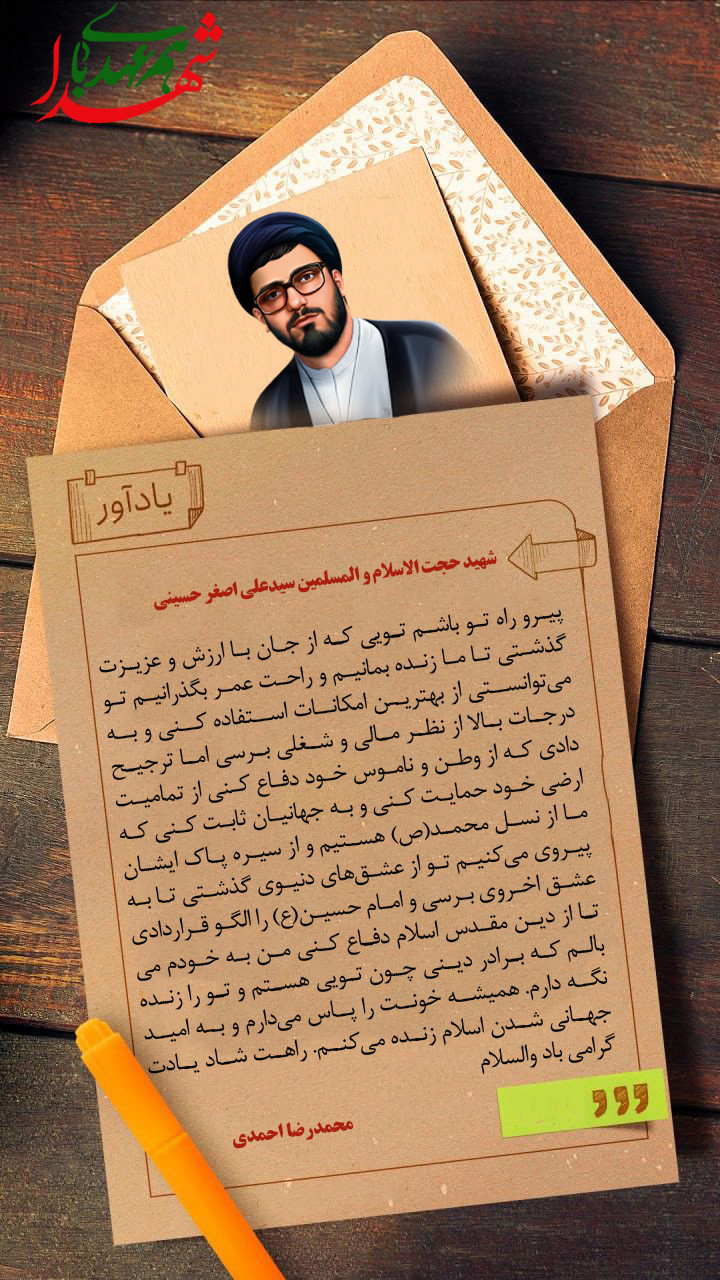 هم عهدی با شهدا
یادآور
شهید حجت الاسلام و المسلمین سیدعلی اصغر حسینی
پیرو راه تو باشم تویی که از جان با ارزش و عزیزت
گذشتی تا ما زنده بمانیم و راحت عمر بگذرانیم تو
می‌توانستی از بهترین امکانات استفاده کنی و به
درجات بالا از نظر مالی و شغلی برسی اما ترجیح
دادی که از وطن و ناموس خود دفاع کنی از تمامیت
ارضی خود حمایت کنی و به جهانیان ثابت کنی که
ما از نسل محمد(ص) هستیم و از سیره پاک ایشان
پیروی می‌کنیم تو از عشق‌های دنیوی گذشتی تا به
عشق اخروی برسی و امام حسین(ع) را الگو قراردادی
تا از دین مقدس اسلام دفاع کنی من به خودم می
بالم که برادر دینی چون تویی هستم و تو را زنده
نگه دارم. همیشه خونت را پاس می‌دارم و به امید
جهانی شدن اسلام زنده می‌کنم. راهت شاد یادت
گرامی باد والسلام
محمدرضا احمدی